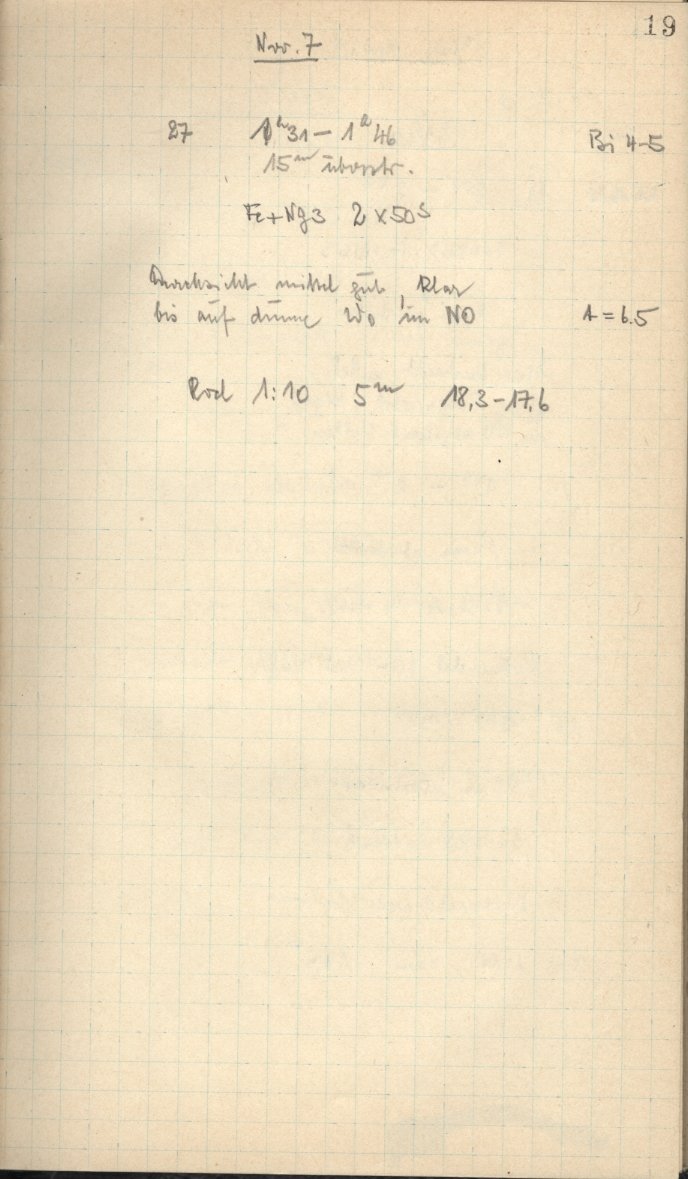 19
Nov. 7
27 1ʰ31 – 1ʰ46 Bi 4-5
15ᵐ überstr.
Fe+Ng3 2 x 50ˢ
Durchsicht mittel gut, klar
bis auf dünne Wo im NO A = 6.5
Rod 1:10 5ᵐ 18,3-17,6